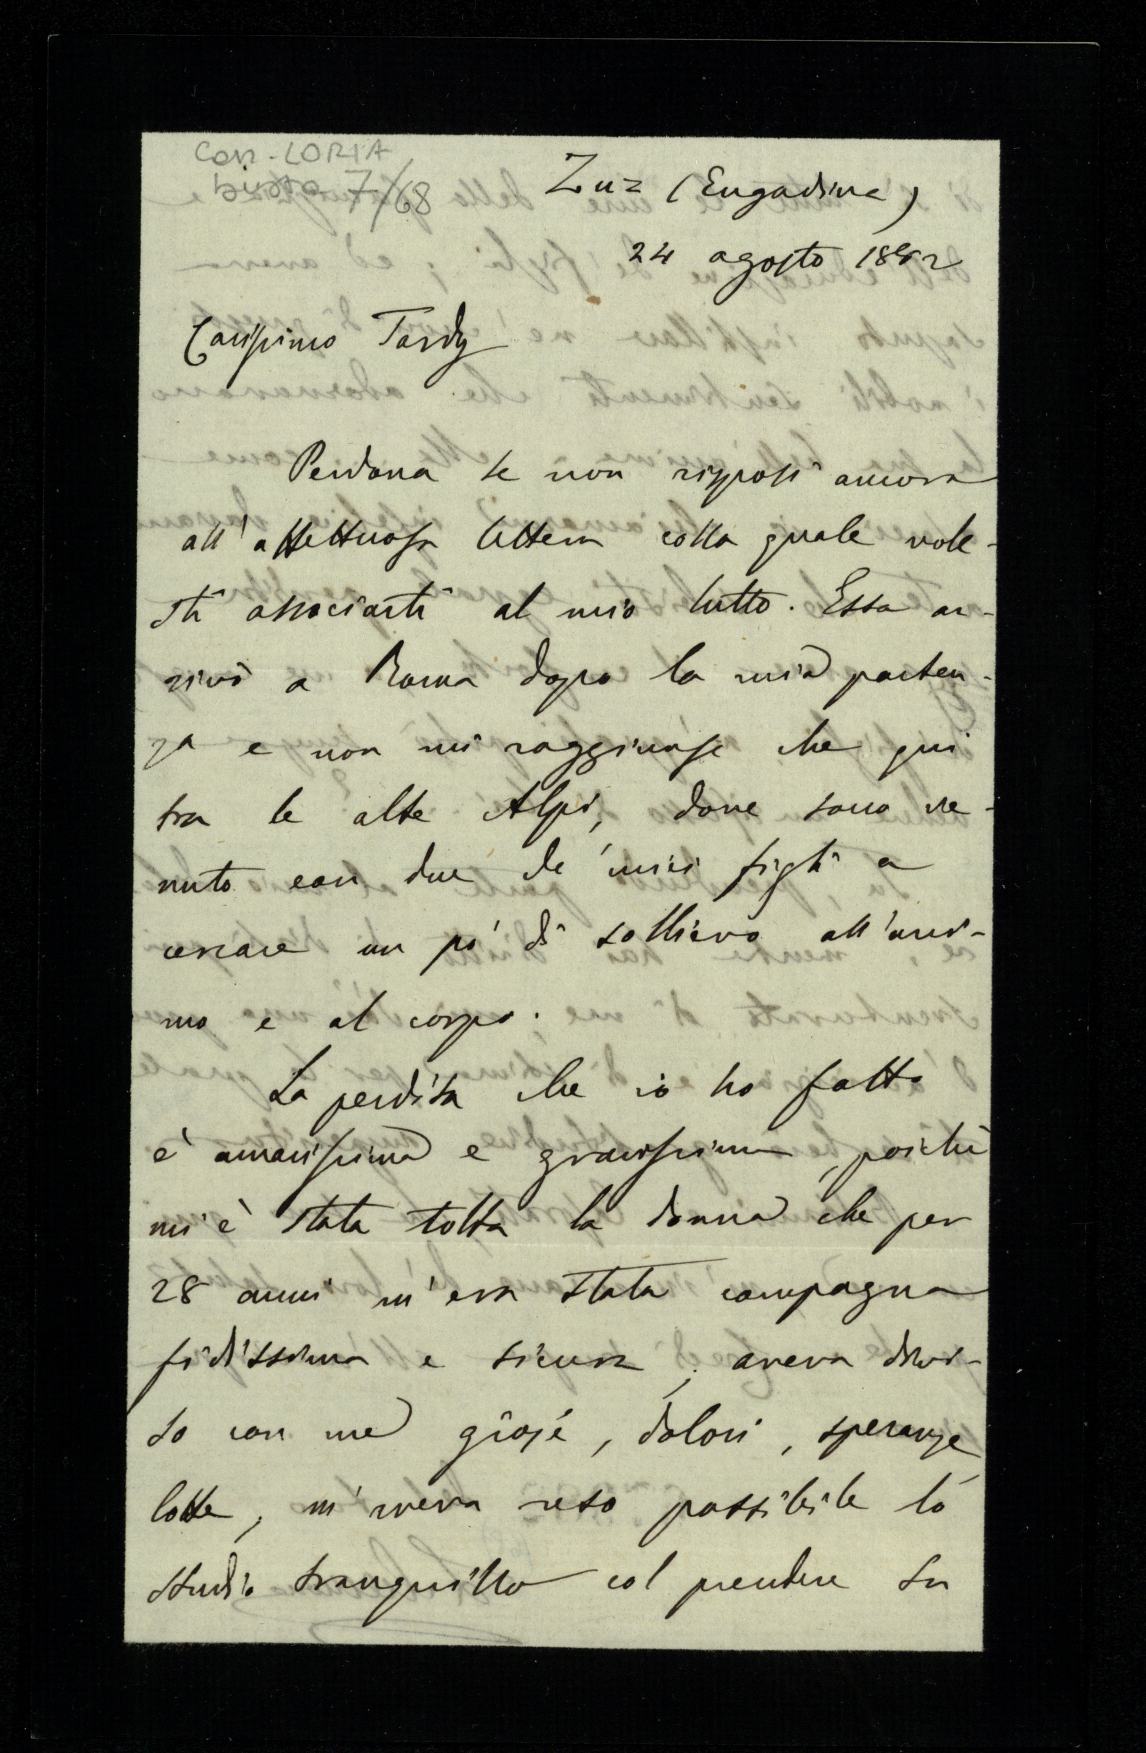 Con-LORIA
busta 7/68
Zuz (Engadina)
24 agosto 1882
Carissimo Tardy
Perdona se non risposi ancora
all'affettuosa lettera colla quale vole-
sti associarti al mio lutto. Essa ar-
rivò a Roma dopo la mia parten-
za e non mi raggiunse che qui
tra le alte Alpi, dove sono ve-
nuto con due de' miei figli a
cercare un po' di sollievo all'ani-
mo e al corpo.
La perdita che io ho fatto
è amarissima e gravissima, poichè
mi è stata tolta la donna che per
28 anni m'era stata compagna
fidissima e sicura; aveva divi-
so con me gioje, dolori, speranze
lotte, m'aveva reso possibile lo
studio tranquillo col prendere su